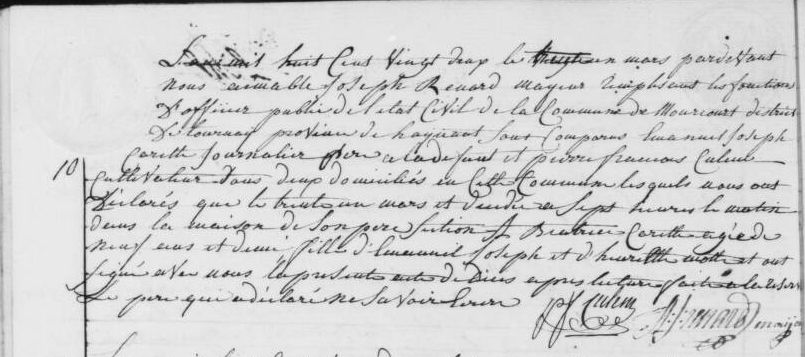 L'an mil huit Cent vingt deux le en mars pardevant
nous aimable Joseph Renard mayeur remplissant les fonction
D'officier public de l'etat Civil de la Commune de Mourcourt district
De tournay province de haynaut sont Comparus Emanuel Joseph
Carette Journalier pere a la defunt et pierre francois Culem
10 Cultivateur tous deux domiciliés en Cette Commune lesquels nous ont
Déclarés que le trente un mars est décédée a Sept heures le matin
dans la maison de Son pere Section Beatrice Carette agée de
neuf ans et demi fille d'Emanuel Joseph et d'henriette motte et ont
signé avec nous la présent acte de Décès apres lecture faite a la reserve
Le pere qui a déclaré ne Savoir
A: J: renard mayeur